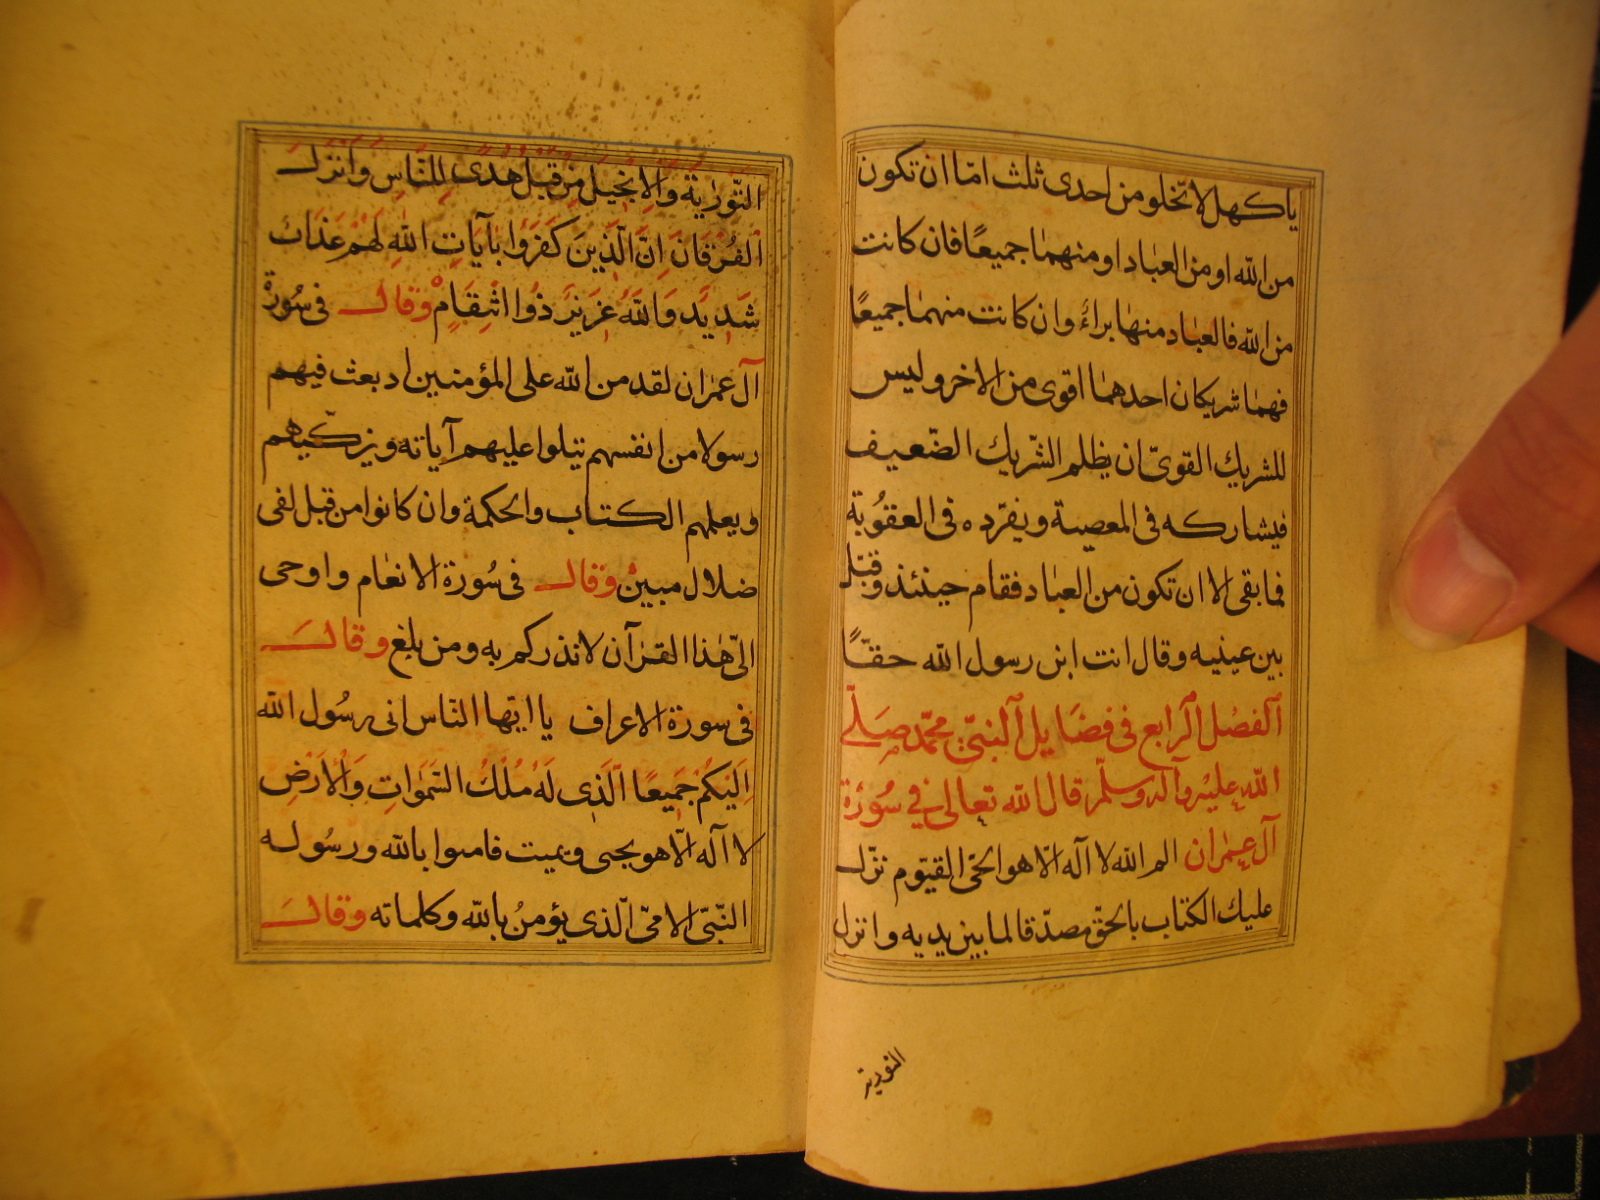 ياكهل لا تخلو من احدى ثلث امّا ان تكون
من الله او من العباد او منهما جميعًا فان كانت
من الله فالعباد منها براءُ وان كانت منهما جميعًا
فهما شريكان احدهما اقوى من الاخر وليس
للشريك القوىّ ان يظلم الشّريك الضّعيف
فيشاركه فى المعصية ويفرّده فى العقوُبة
فمابقى الا ان تكون من العباد فقام حينئذ وقبّل
بين عينيه وقال انت ابن رسول الله حقّاً
الفصْل الرابع فى فضَايل النبىّ محمّد صَلّى
الله عليْه وآله وسلّم قال الله تعالى فى سُورْة
آل عِمْران الم الله لا آله الّا هو الحىّ القيّوم نزّل
عليك الكتاب بالحقّ مصدّقا لما بين يديه وانزل
التورية
التّوْرٰية وَالْاِنْجيل مِن قبْل هُدىً لِلنَّاسِ وَانْزَلَ
الفُرْقانَ اِنَّ الّذينَ كَفَرُوا بآيَاتِ اللهِ لهمْ عَذابٌ
شَدِيَد وَاللهُ عَزِيز ذُوا انْتِقَامٍ وقال فى سُورة
آل عمران لقد من الله على المؤمنين اد بعث فيهم
رسولا من انفسهم يتلوا عليهم آياته ويزكّيهم
ويعلمهم الكتاب والحكمة وان كانوا من قبل لفى
ضلال مبين وقال فى سُورة الانعام واوحى
الىّ هٰذا القرآن لانذركم به ومن بلغ وقال
فى سورة الاعراف يا ايّها النّاس انى رسُول الله
اِلَيْكُمْ جَمِيعًا الّذِى لَهُ مُلْكُ السَّمٰواتِ وَالْارَضِ
لا آله الّا هو يحيى ويميت فامنوا بالله ورسُوله
النّبىّ الامىّ الّذى يؤمنُ بالله وكلماته وقال